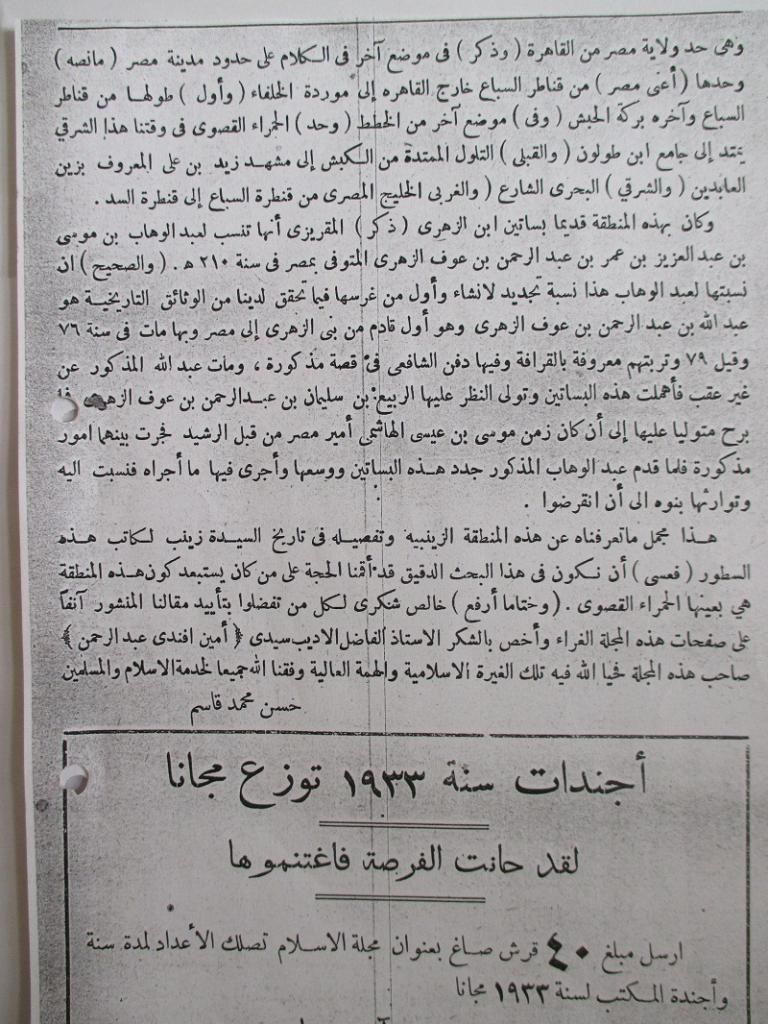 وهى حد ولاية مصر من القاهرة ( وذكر ) فى موضع آخر فى الكلام على حدود مدينة مصر ( مانصه )
وحدها ( أعنى مصر ) من قناطر السباع خارج القاهره إلى موردة الخلفاء ( وأول ) طولها من قناطر
السباع وآخره بركة الحبش ( وفى ) موضع آخر من الخطط ( وحد ) الحمراء القصوى فى وقتنا هذا الشرقي
يمتد إلى جامع ابن طولون ( والقبلى ) التلول الممتدة من الكبش إلى مشهد زيد بن على المعروف بزين
العابدين ( والشرقي ) البحرى الشارع ( والغربى الخليج المصرى من قنطرة السباع إلى قنطرة السد .
وكان بهذه المنطقة قديما بساتين ابن الزهرى ( ذكر ) المقريزى أنها تنسب لعبد الوهاب بن موسى
بن عبد العزيز بن عمر بن عبد الرحمن بن عوف الزهرى المتوفى بمصر فى سنة ٢١٠ هـ . ( والصحيح ) ان
نسبتها لعبد الوهاب هذا نسبة تجديد لانشاء وأول من غرسها فيما تحقق لدينا من الوثائق التاريخية هو
عبد الله بن عبد الرحمن بن عوف الزهرى وهو أول قادم من بنى الزهرى إلى مصر وبها مات فى سنة ٧٦
وقيل ٧٩ وتربتهم معروفة بالقرافة وفيها دفن الشافعى فى قصة مذكورة ، ومات عبد الله المذكور عن
غير عقب فأهملت هذه البساتين وتولى النظر عليها الربيع بن سليمان بن عبدالرحمن بن عوف الزهرى
برح متوليا عليها إلى أن كان زمن موسى بن عيسى الهاشمى أمير مصر من قبل الرشيد فجرت بينهما امور
مذكورة فلما قدم عبد الوهاب المذكور جدد هذه البساتين ووسعها وأجرى فيها ما أجراه فنسبت اليه
وتوارثها بنوه الى أن انقرضوا .
هذا مجمل ماتعرفناه عن هذه المنطقة الزينبيه وتفصيله فى تاريخ السيدة زينب لكاتب هذه
السطور ( فعسى ) أن نكون فى هذا البحث الدقيق قد أقمنا الحجة على من كان يستبعد كون هذه المنطقة
هي بعينها الحمراء القصوى . ( وختاما أرفع ) خالص شكرى لكل من تفضلوا بتأييد مقالنا المنشور آنفاً
على صفحات هذه المجلة الغراء وأخص بالشكر الاستاذ الفاضل الاديب سيدى ﴿ أمين افندى عبد الرحمن ﴾
صاحب هذه المجلة فحيا الله فيه تلك الغيرة الاسلامية والهمة العالية وفقنا الله جميعا لخدمة الاسلام والمسلمين
حسن محمد قاسم
أجندات سنة ١٩٣٣ توزع مجانا
لقد حانت الفرصة فاغتنموها
ارسل مبلغ ٤٠ قرش صاغ بعنوان مجلة الاسلام تصلك الأعداد لمدة سنة
وأجندة المكتب لسنة ١٩٣٣ مجانا